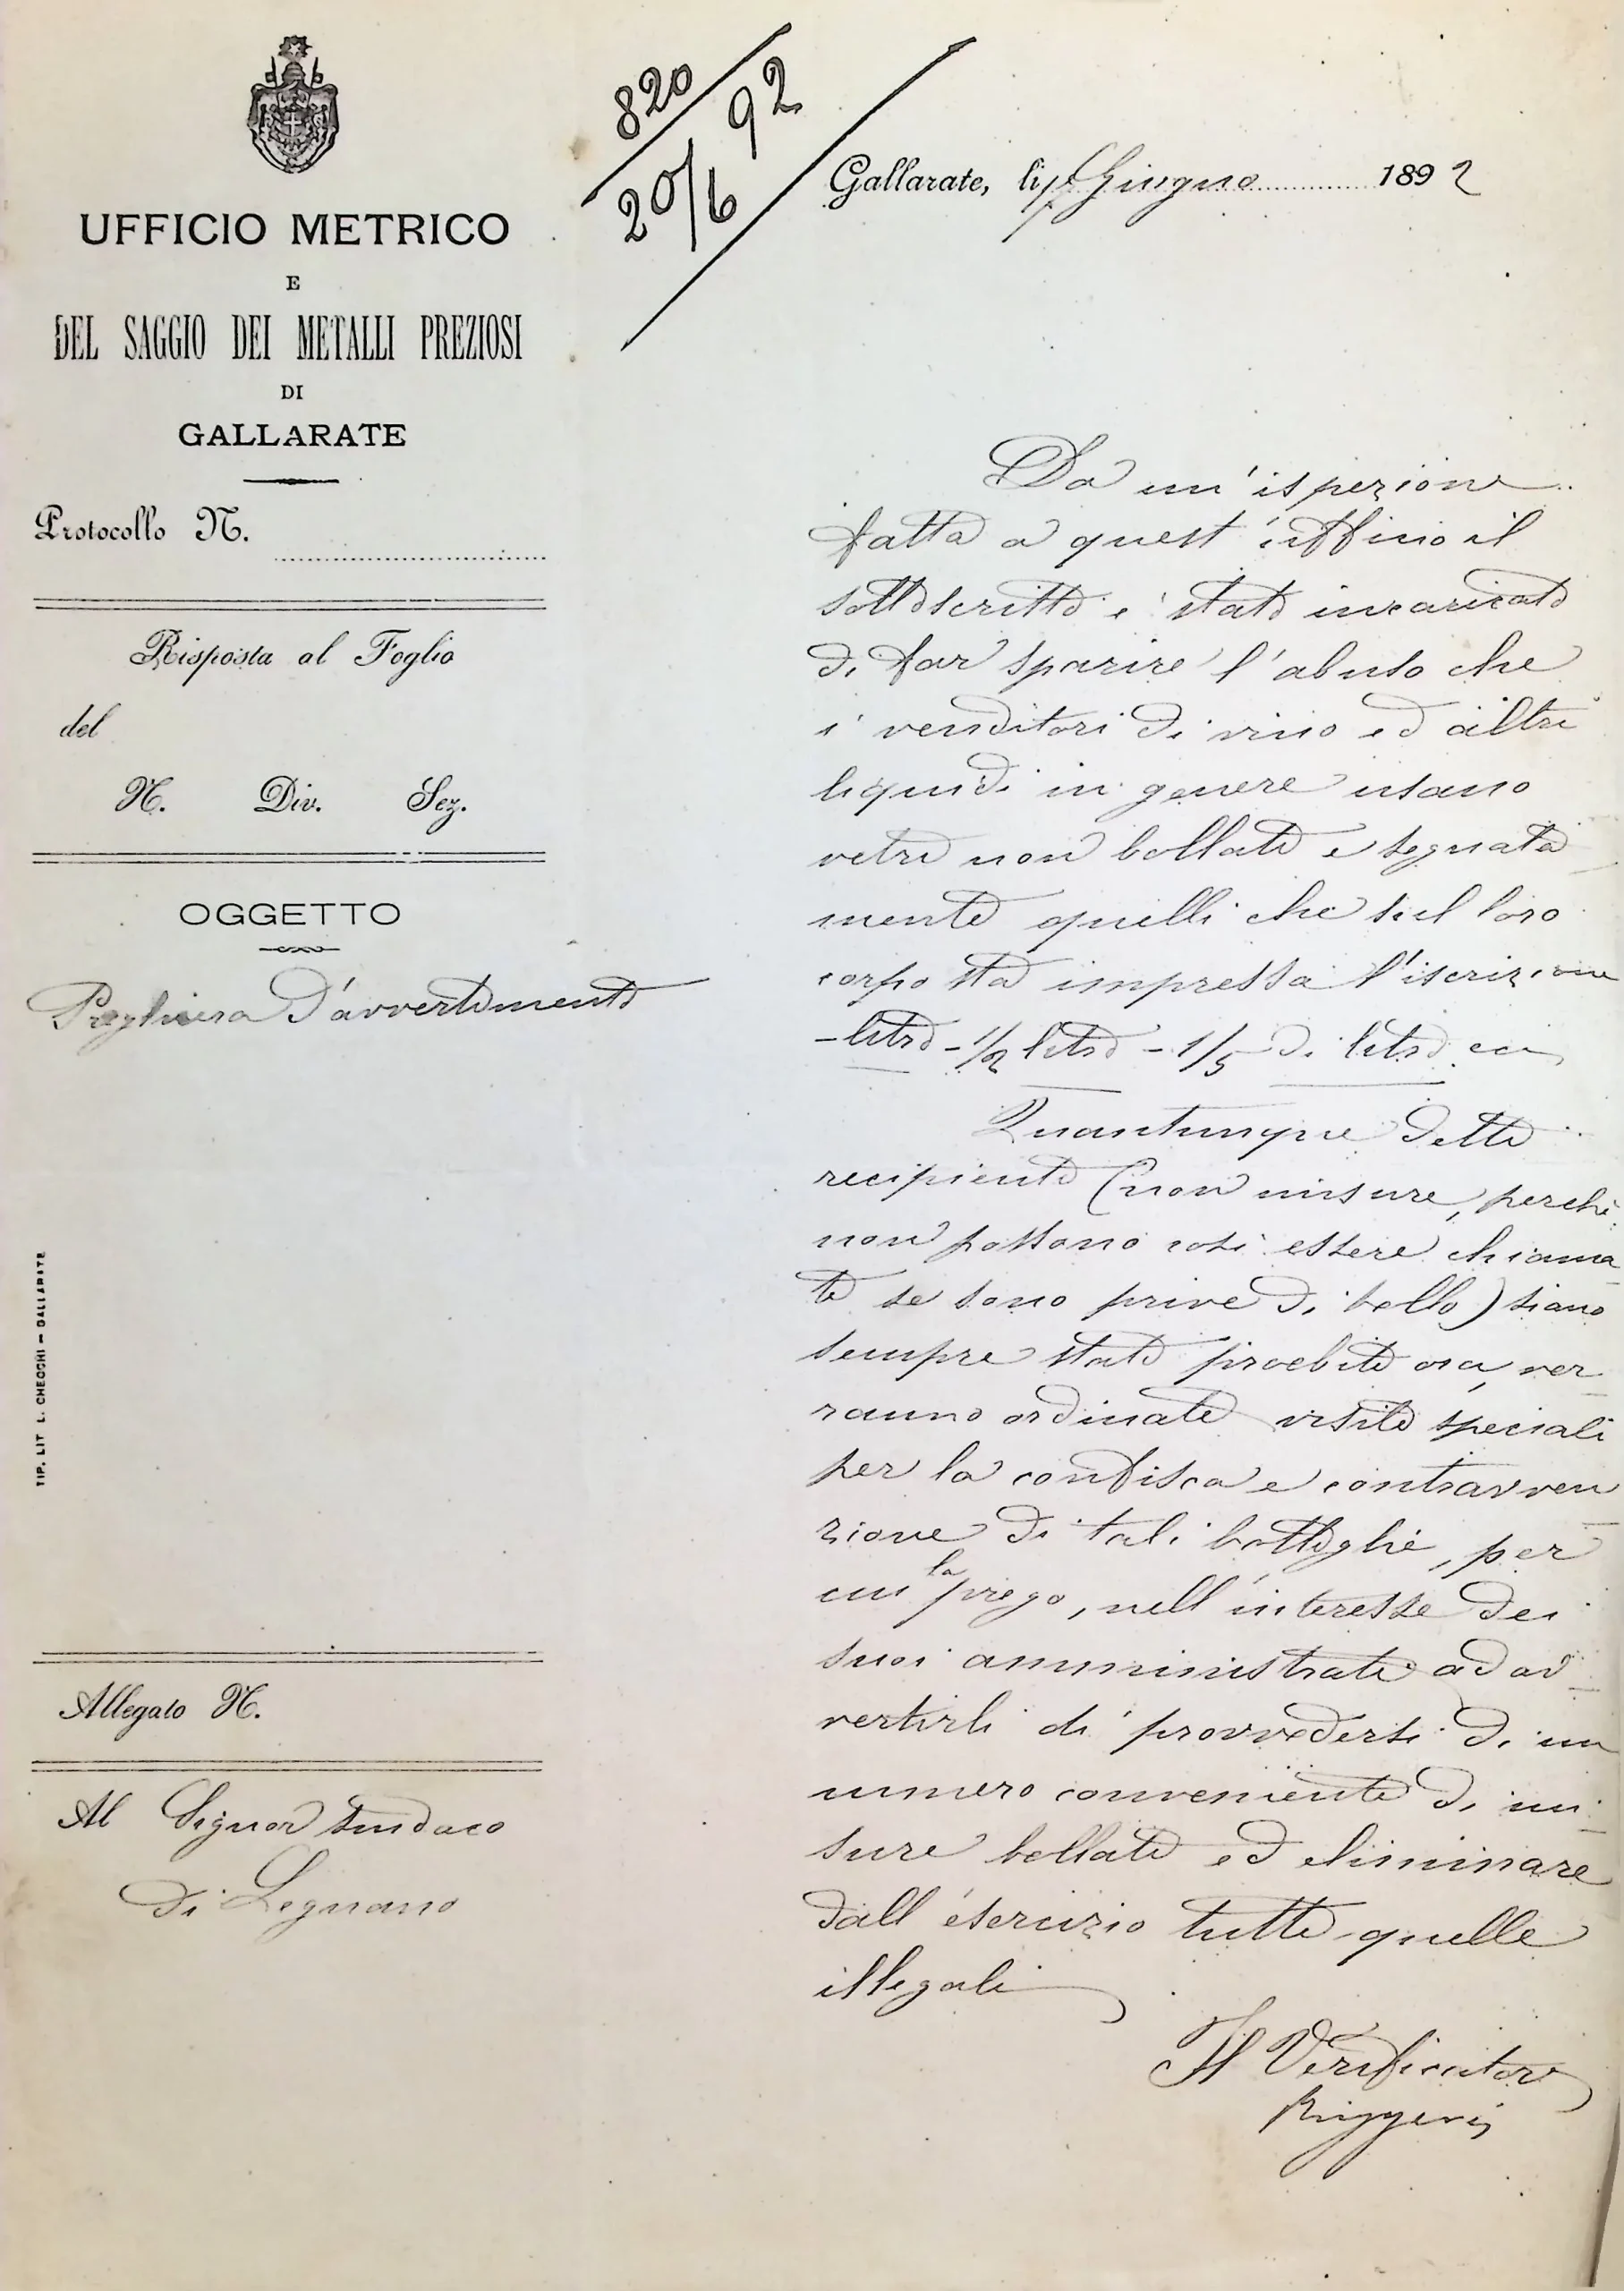 UFFICIO METRICO
E
DEL SAGGIO DEI METALLI PREZIOSI
DI
GALLARATE
Protocollo N.
Risposta al Foglio
del
N. Div. Sez.
OGGETTO
Preghiera d'avvertimento
TIP. LIT L. CHECCHI - GALLARATE
Allegato N.
Al Signor Sindaco
di Legnano
820
92
20/6
Gallarate, li Giugno 1892
Da un'ispezione
fatta a quest'ufficio il
sottoscritto e' stato incaricato
di far sparire l'abuso che
i venditori di vino ed altri
liquidi in genere usano
vetri non bollati e segnata
mente quelli che sul loro
corpo sta impressa l'iscrizione
- litro - 1/2 litro - 1/5 di litro ecc,
Quantunque dette
recipienti (non misure, perchè
non possono così essere chiama
te se sono prive di bollo) siano
sempre state proebite ora, ver
ranno ordinate visite speciali
per la confisca e contravven
zione di tali bottiglie, per
cui la prego, nell'interesse dei
suoi amministrati ad av
vertirli di provvedersi di un
numero conveniente di mi
sure bollate ed eliminare
dall'esercizio tutte quelle
illegali
Il Verificatore